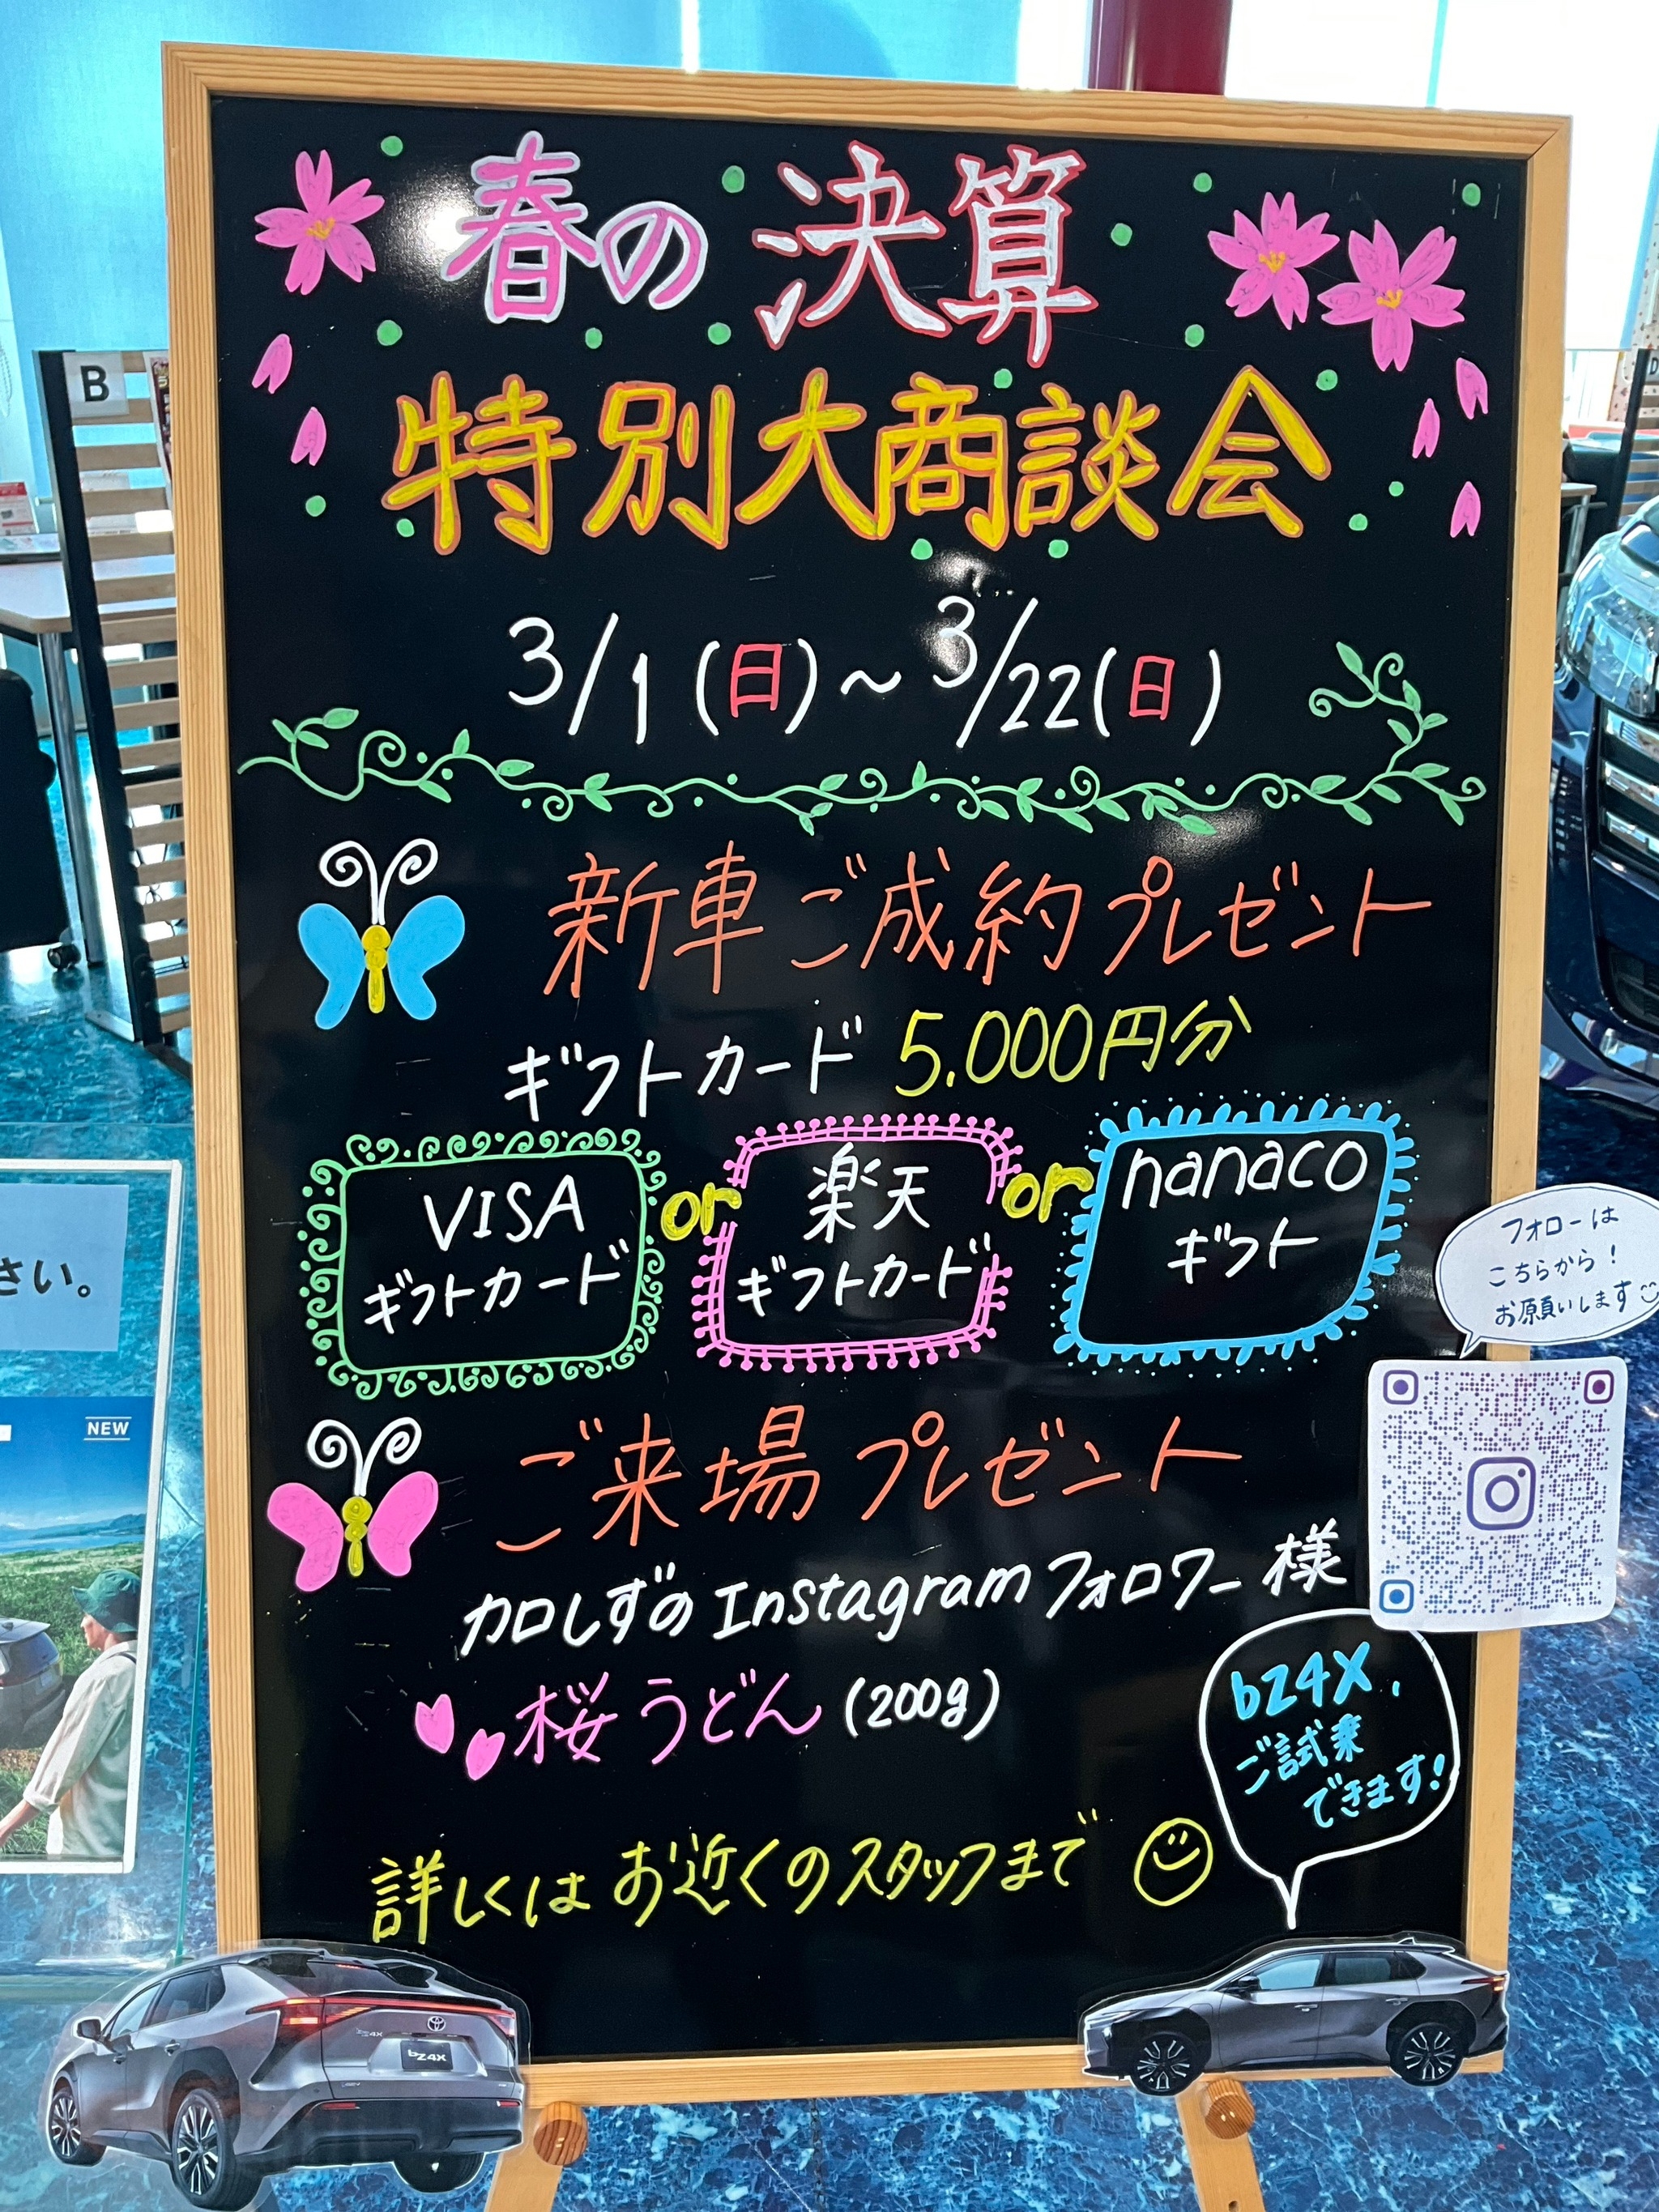 春の決算
特別大商談会
3/1(日)～3/22(日)
新車ご成約プレゼント
ギフトカード 5.000円分
VISA
ギフトカード
or
楽天
ギフトカード
or
nanaco
ギフト
フォローは
こちらから!
お願いします
ご来場プレゼント
カロしずのInstagramフォロワー様
桜うどん(200g)
bZ4X、
ご試乗
できます!
詳しくはお近くのスタッフまで
B
さい。
NEW
bZ4X
bZ4X